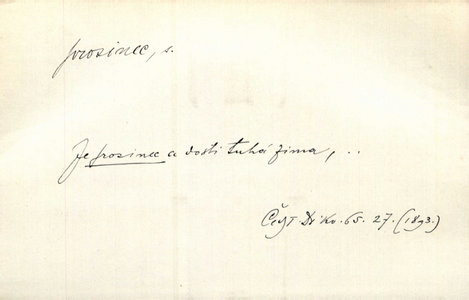 prosinec, s.
Je prosinec a dosti tuhá zima, ..
65. 27. (1893.)